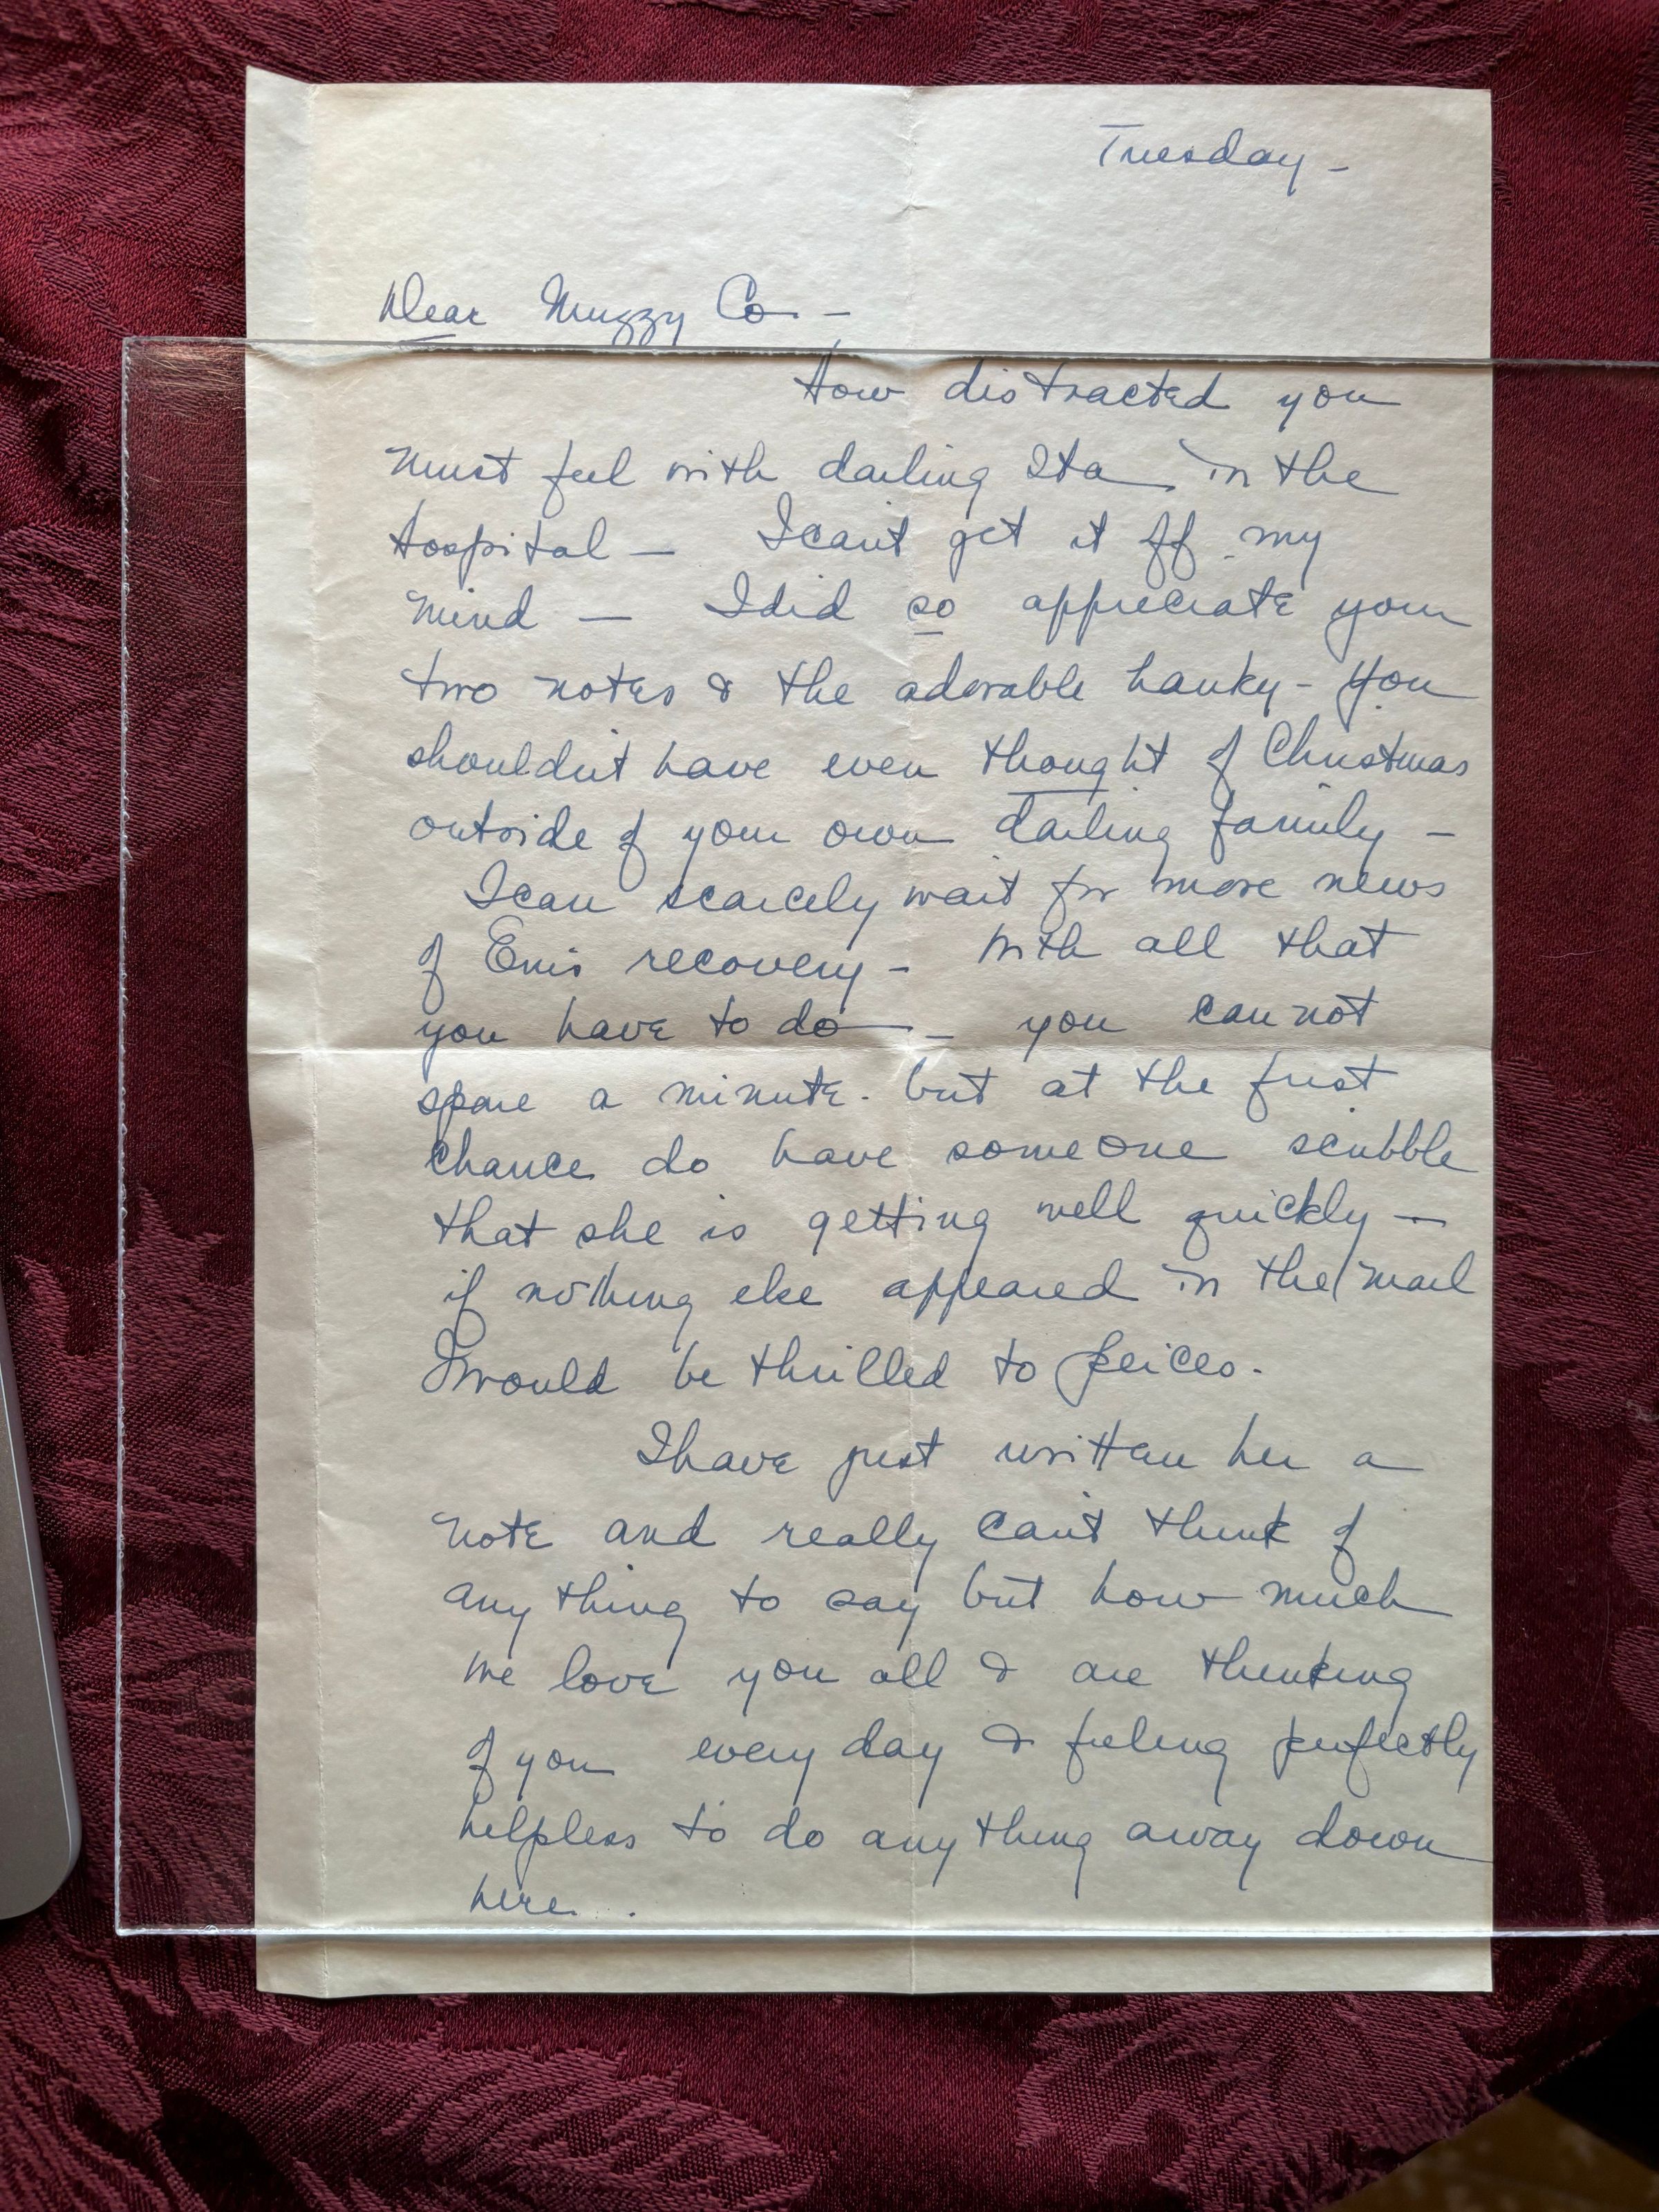 Tuesday -
Dear Muzzy Co. -
How distracted you
must feel with darling Ita in the
hospital — I can't get it off my
mind — I did so appreciate your
two notes & the adorable hanky - you
shouldn't have even thought of Christmas
outside of your own darling family -
I can scarcely wait for more news
of recovery - With all that
you have to do - you can not
spare a minute. but at the first
chance do have someone scribble
that she is getting well quickly —
if nothing else appeared in the mail
I would be thrilled to peices.
I have just written her a
note and really can't think of
any thing to say but how much
we love you all & are thinking
of you every day & feeling perfectly
helpless to do any thing away down
here.